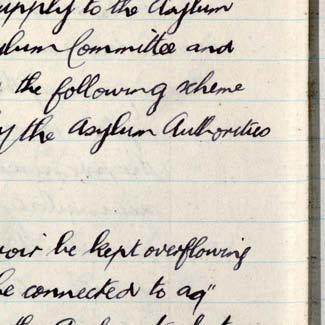 supply to the Asylum
ylum Committee and
the following scheme
y the Asylum Authorities
voir be kept overflowing
be connected to a 9"
the Asylum